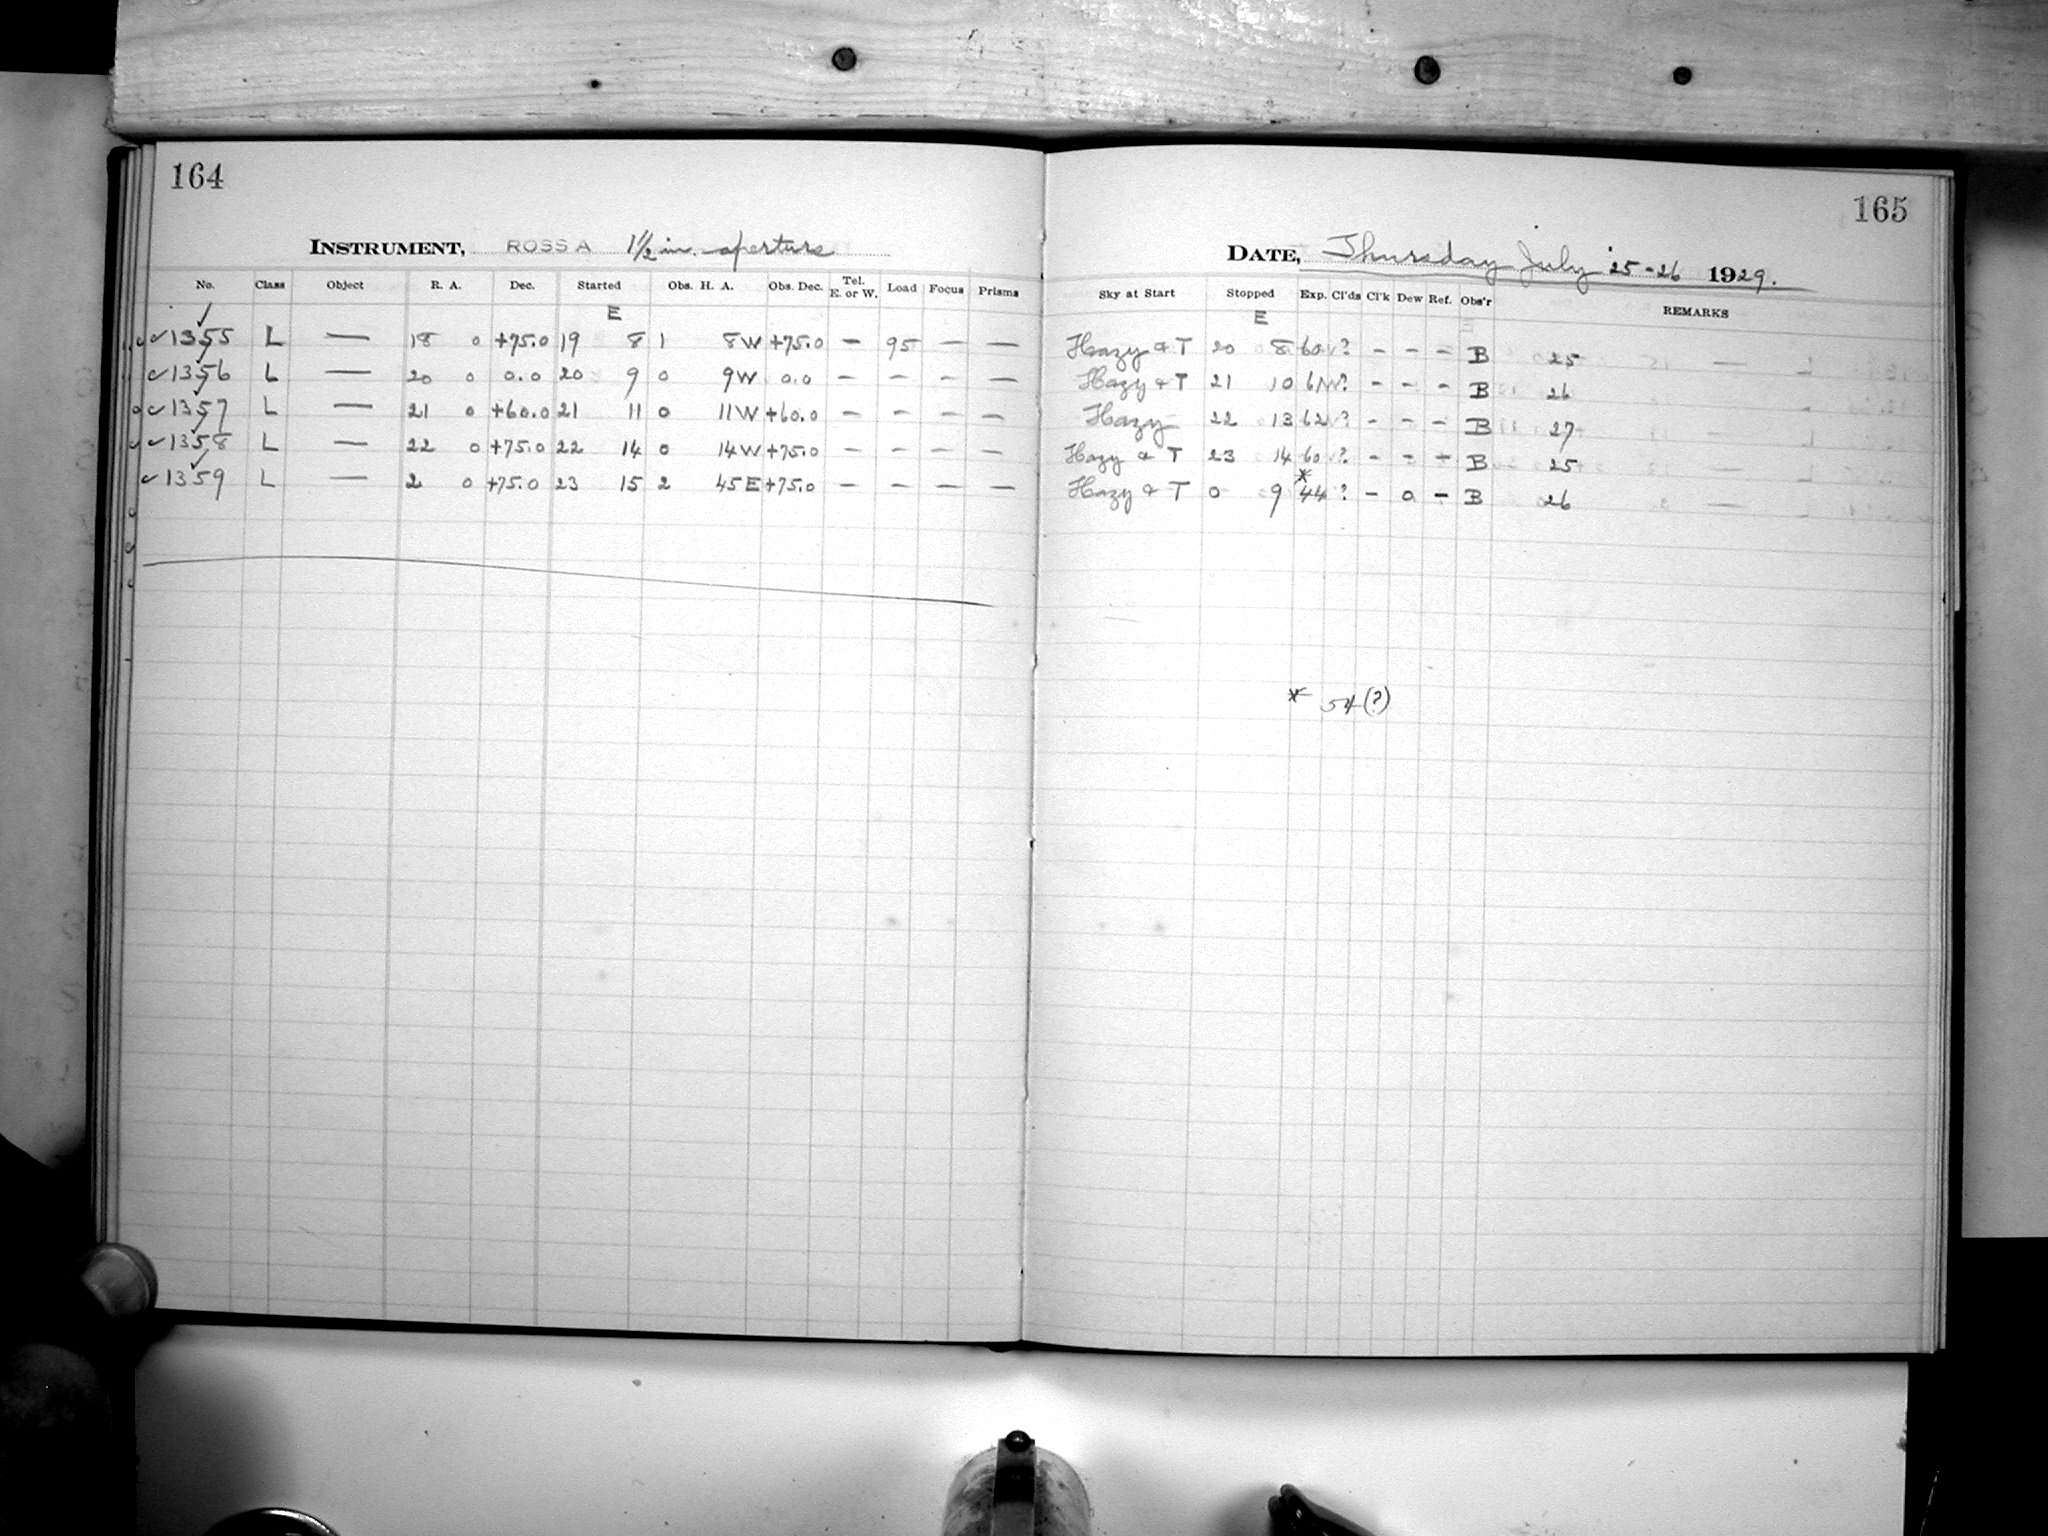 164
INSTRUMENT, ROSS A 1½ in. aperture
No. Class Object R. A. Dec. Started Obs. H. A. Obs. Dec. Tel. E. or W. Load Focus Prisms
E
✓ 1355 L — 18 0 +75.0 19 8 1 8W +75.0 — 95 — —
✓ 1356 L — 20 0 0.0 20 9 0 9W 0.0 — — — —
✓ 1357 L — 21 0 +60.0 21 11 0 11W +60.0 — — — —
✓ 1358 L — 22 0 +75.0 22 14 0 14W +75.0 — — — —
✓ 1359 L — 2 0 +75.0 23 15 2 45E +75.0 — — — —
165
DATE, Thursday July 25-26 1929.
Sky at Start Stopped Exp. Cl'ds Cl'k Dew Ref. Obs'r REMARKS
E
Hazy & T 20 8 60 ? – – – B 25
Hazy & T 21 10 61 ? – – – B 26
Hazy 22 13 62 ? – – – B 27
Hazy & T 23 14 60 ? – – – B 25
Hazy & T 0 9 *44 ? – 0 – B 26
* 54 (?)